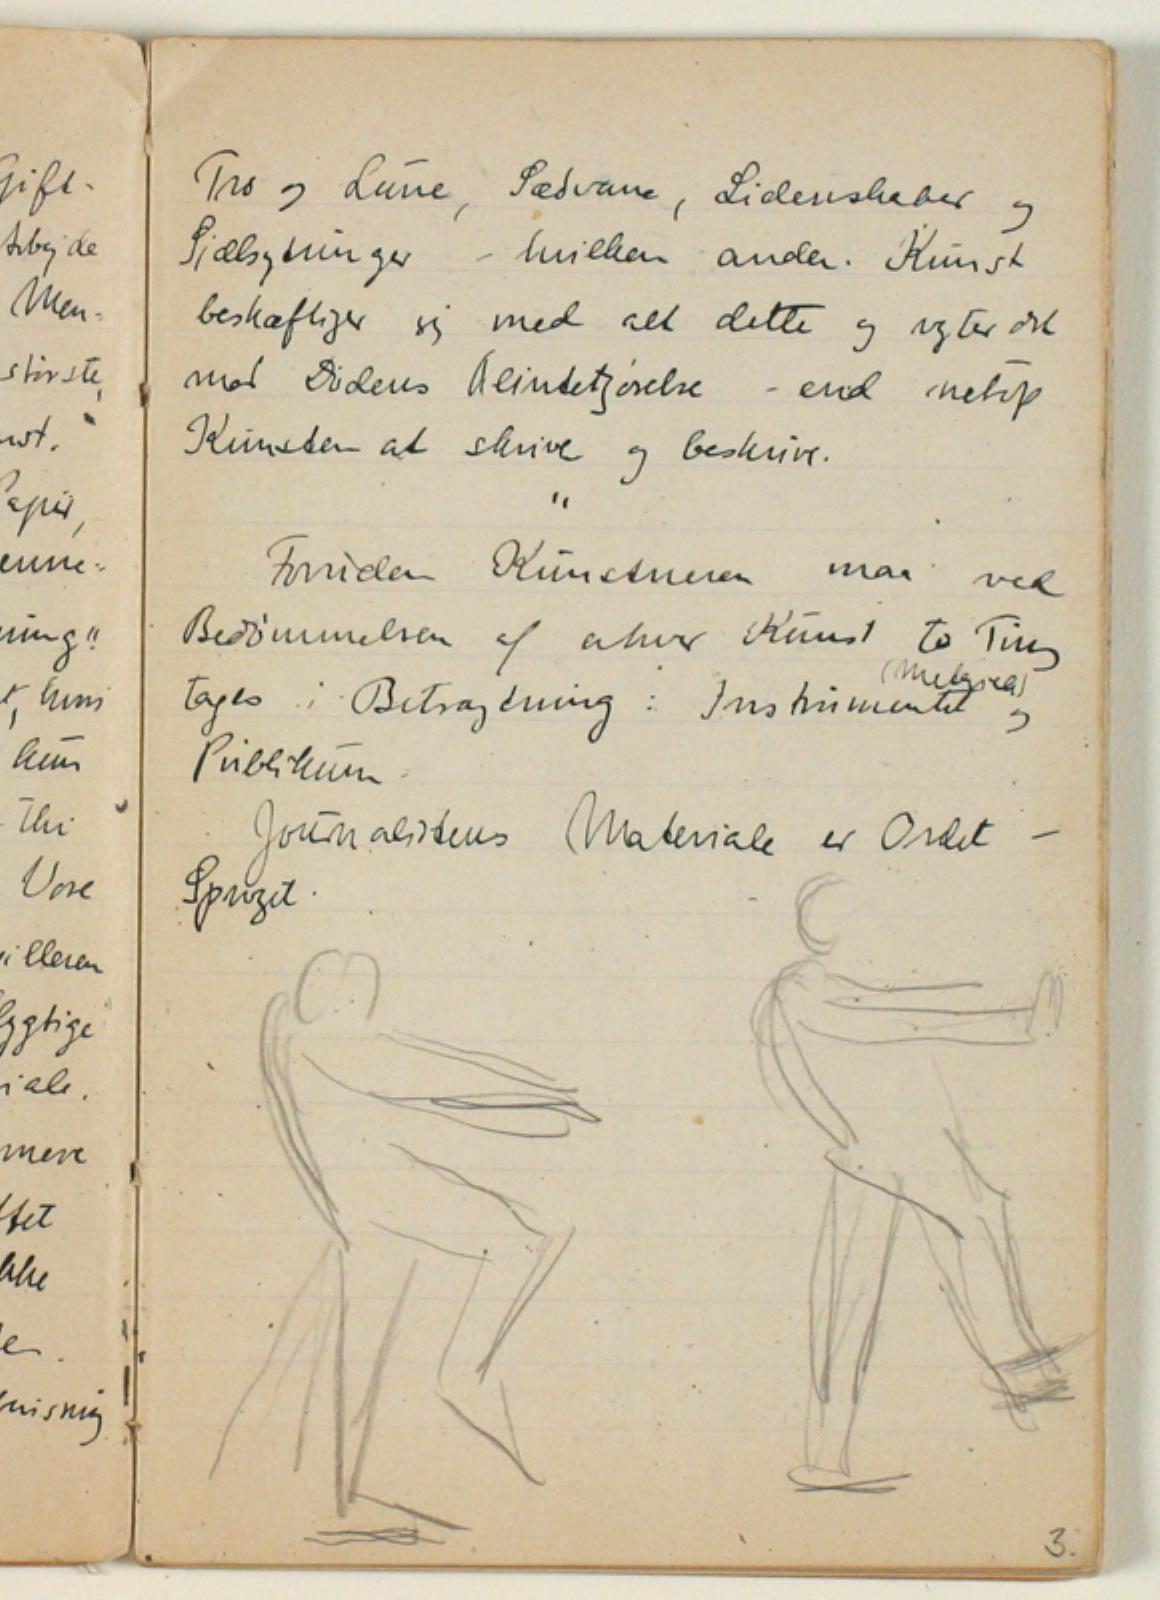 Gift-
Arbejde
Men-
største,
Papir,
enne-
ning"
hvis
kun
Thi
Vore
illeren
ygtige
iale.
mere
ttet
kke
Tro og Lune, Sædvane, Lidenskaber og
- hvilken anden Kunst
beskæftiger sig med alt dette og det
mod Dödens - end netop
Kunsten at skrive og beskrive.
"
Foruden Kunstneren maa ved
Bedömmelsen af enhver Kunst to Ting
tages i Betragtning : Instrumentet og
Publikum.
Journalistens Materiale er Ordet -
Sproget.
3.